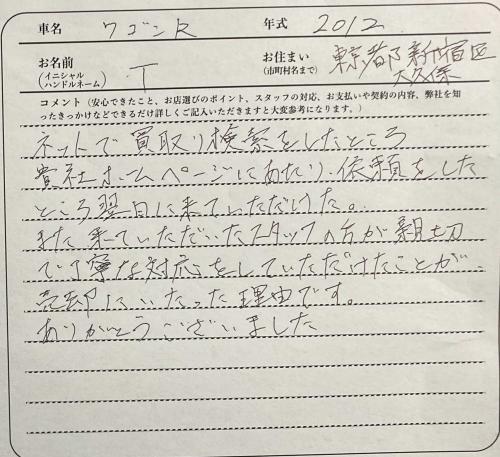 車名 ワゴンR 年式 2012
お名前 (イニシャル ハンドルネーム) T お住まい (市町村名まで) 東京都新宿区 大久保
コメント（安心できたこと、お店選びのポイント、スタッフの対応、お支払いや契約の内容、弊社を知
ったきっかけなどできるだけ詳しくご記入いただきますと大変参考になります。）
ネットで買取り検索をしたところ
貴社ホームページにあたり、依頼をした
ところ翌日に来ていただけた。
また来ていただいたスタッフの方が親切
で丁寧な対応をしていただけたことが
売却にいたった理由です。
ありがとうございました